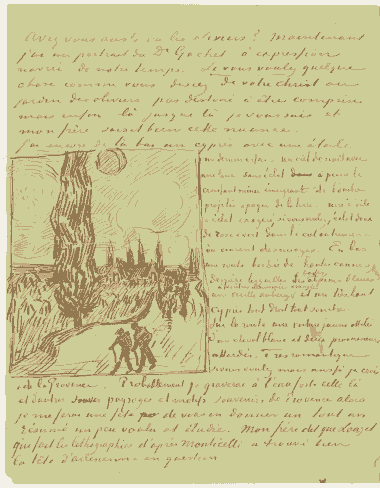 Avez vous aussi vu les oliviers? Maintenant
j'ai un portrait du Dr Gachet à expression
navrée de notre temps. Si vous voulez quelque
chose comme vous disiez de votre Christ au
jardin des oliviers pas destiné à être compris
mais enfin là jusque là je vous suis et
mon frère saisit bien cette nuance.
J'ai encore de là bas un cyprès avec une étoile
un dernier essai. un ciel de nuit avec
une lune sans éclat à peine le
croissant mince émergeant de l'ombre
projetée opaque de la terre. une étoile
à éclat exagéré si vous voulez, éclat doux
de rose et vert dans le ciel outremer
où courent des nuages. En bas
une route bordée de hautes cannes
jaunes derrière lesquelles les basses Alpines bleues
une vieille auberge et un très haut
cyprès tout droit tout sombre
Sur la route une voiture jaune attelée
d'un cheval blanc et deux promeneurs
attardés. Très romantique
si vous voulez mais aussi je crois
de la Provence. Probablement je graverai à l'eau forte celle là
et d'autres paysages et motifs souvenirs de Provence alors
je me ferai une fête de vous en donner un tout un
résumé un peu voulu et étudié. Mon frère dit que Lauzet
qui fait les lithographies d'après Monticelli a trouvé bien
la tête d'arlésienne en question